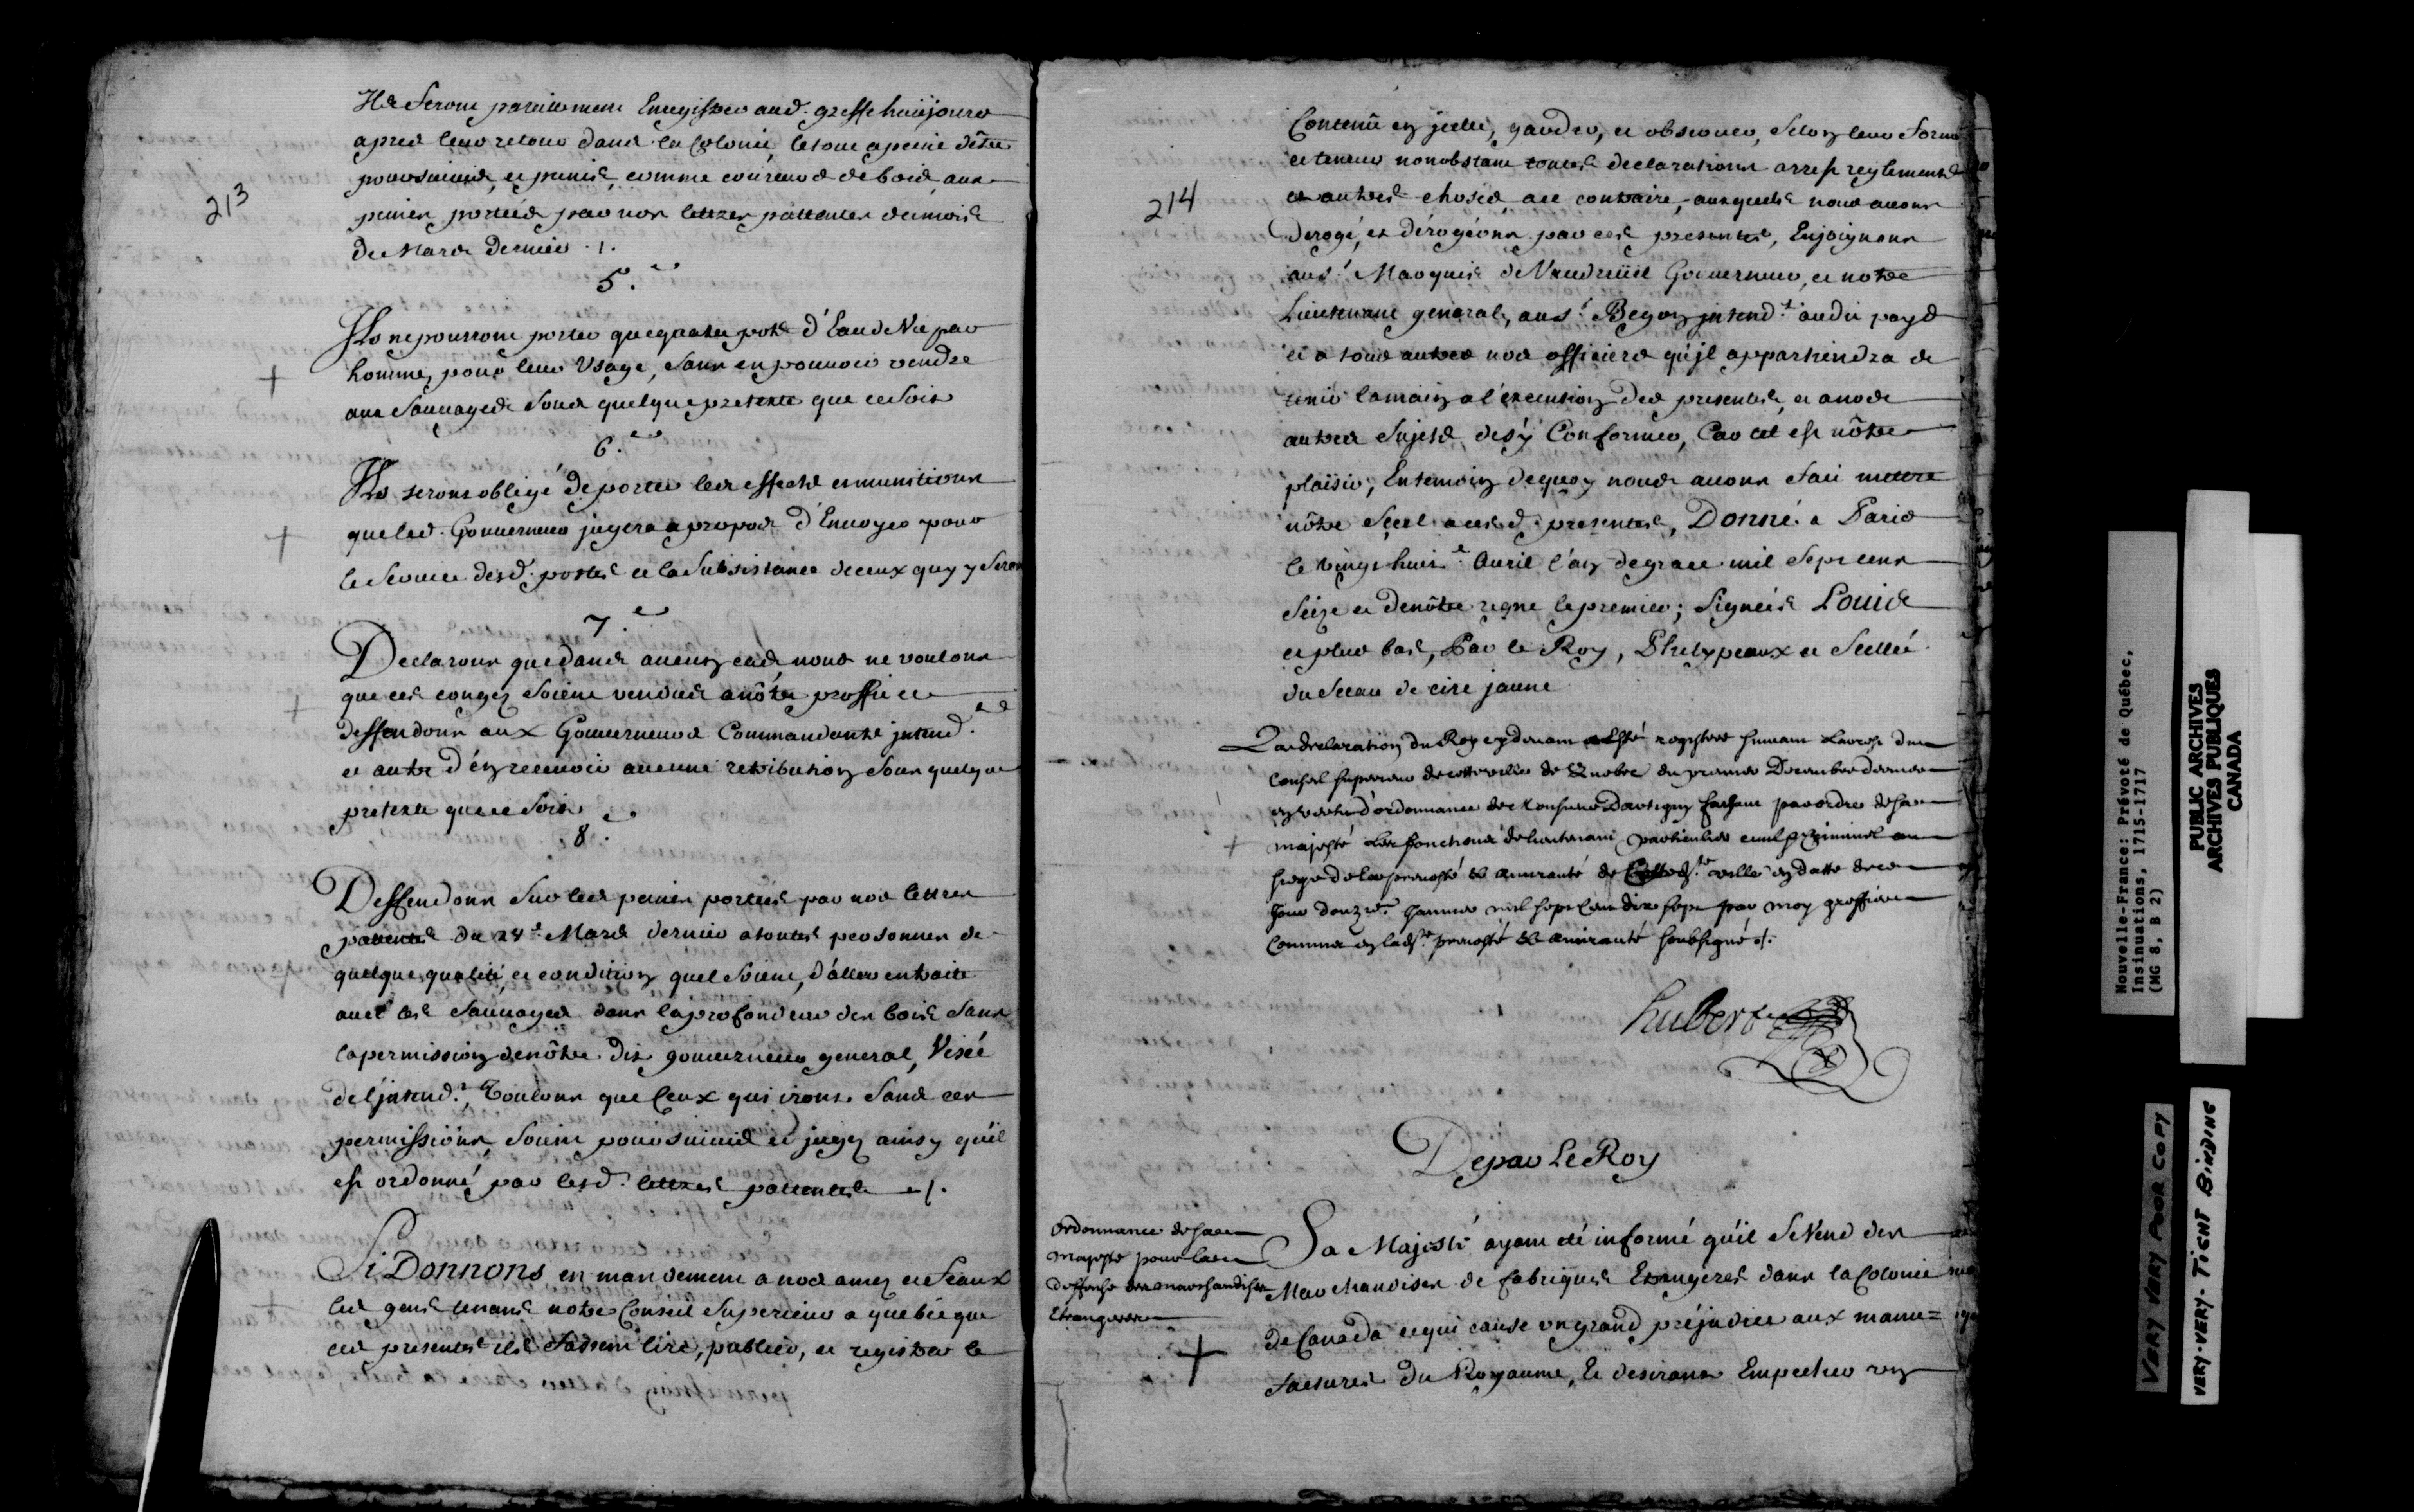 213
Ils seront pareillement Enregistrer aud. greffe huit jours
apres leur retour dans la Colonie, le tout a peine d'être
poursuivis, et punis, comme coureurs de bois, aux
peines portées par nos lettres pattentes du mois
de Mars dernier ./.
5.e
Ils ne pourront porter que quatre pots d'Eau de Vie par
homme, pour leur Usage, sans en pouvoir vendre
aux Sauvages sous quelque pretexte que ce soit
6.e
Ils seront obligé de porter les effects et munitions
que led. Gouverneur jugera a propos d'Envoyer pour
le Service desd. postes et la Subsistance de ceux quy y seront
7.e
Declarons que dans aucun cas nous ne voulons
que ces congez soient vendus a nôtre proffit et
deffendons aux Gouverneurs Commandants jntend.ts
et autre d'en recevoir aucune retribution sous quelque
pretexte que ce soit
8.e
Deffendons sur les peines portées par nos lettres
pattentes du 28e Mars dernier a toutes personnes de
quelque qualité, et condition quel soient, d'aller en traite
avec les Sauvages dans la profondeur des bois sans
la permission de nôtre dit gouverneur general, Visée
de l'jntend.t, Voulons que Ceux qui iront sans ces
permissions soient poursuivis et jugez ainsy qu'il
est ordonné par lesd. lettres pattentes ./.
Si Donnons en mandement a nos amez et feaux
les gens tenans notre Conseil Superieur a quebec que
ces presentes ils fassent lire, publier, et registrer le
214
Contenû en jcelle, garder, et observer, selon leur forme
et teneur nonobstant toutes declarations arrest reglements
et autres choses au contraire, auxquels nous avons
Derogé, et dérogeons par ces presentes, Enjoignons
au s.r Marquis de Vaudreüil Gouverneur, et notre
Lieutenant general, au s.r Begon jntend.t audit pays
et a tous autres nos officiers qu'jl appartiendra de
tenir la main a l'execution des presentes, et a nos
autres sujets de s'y Conformer, Car tel est nôtre
plaisir; En temoin de quoy nous avons fait mettre
nôtre Scel a cesd. presentes, Donné a Paris
le vingt huit.e Avril l'an de grace mil Sept cens
Seize et de nôtre regne le premier; Signées Louis
et plus bas, Par le Roy, Phelypeaux et Scellée
du Sceau de cire jaune
La declaration du Roy cy devant a Esté registrée suivant Larrest du
Conseil superieur de cette ville de Quebec du premier Decembre dernier
en vertu d'ordonnance de Monsieur Dartigny faisant par ordre de sa
majesté Les fonctions de lieutenant particulier civil et criminel au
siege de la prevosté et amirauté de cette d.te ville en datte de ce
jour douze.e janvier mil sept cens dix sept par moy greffier
Commis en lad.te prevosté et amirauté soubsigné ./.
hubert
De par Le Roy
Ordonnance de sa
majesté pour la
deffense des marchandises
Etrangeres
Sa Majesté ayant été informé qu'il se Vend des
Marchandises de fabriques Etrangeres dans la Colonie
de Canada ce qui cause un grand préjudice aux manu=
factures du Royaume, Et desirant Empecher un
Nouvelle-France: Prévoté de Québec,
Insinuations, 1715-1717
(MG 8, B 2)
PUBLIC ARCHIVES
ARCHIVES PUBLIQUES
CANADA
VERY VERY POOR COPY
VERY-VERY-TIGHT BINDING